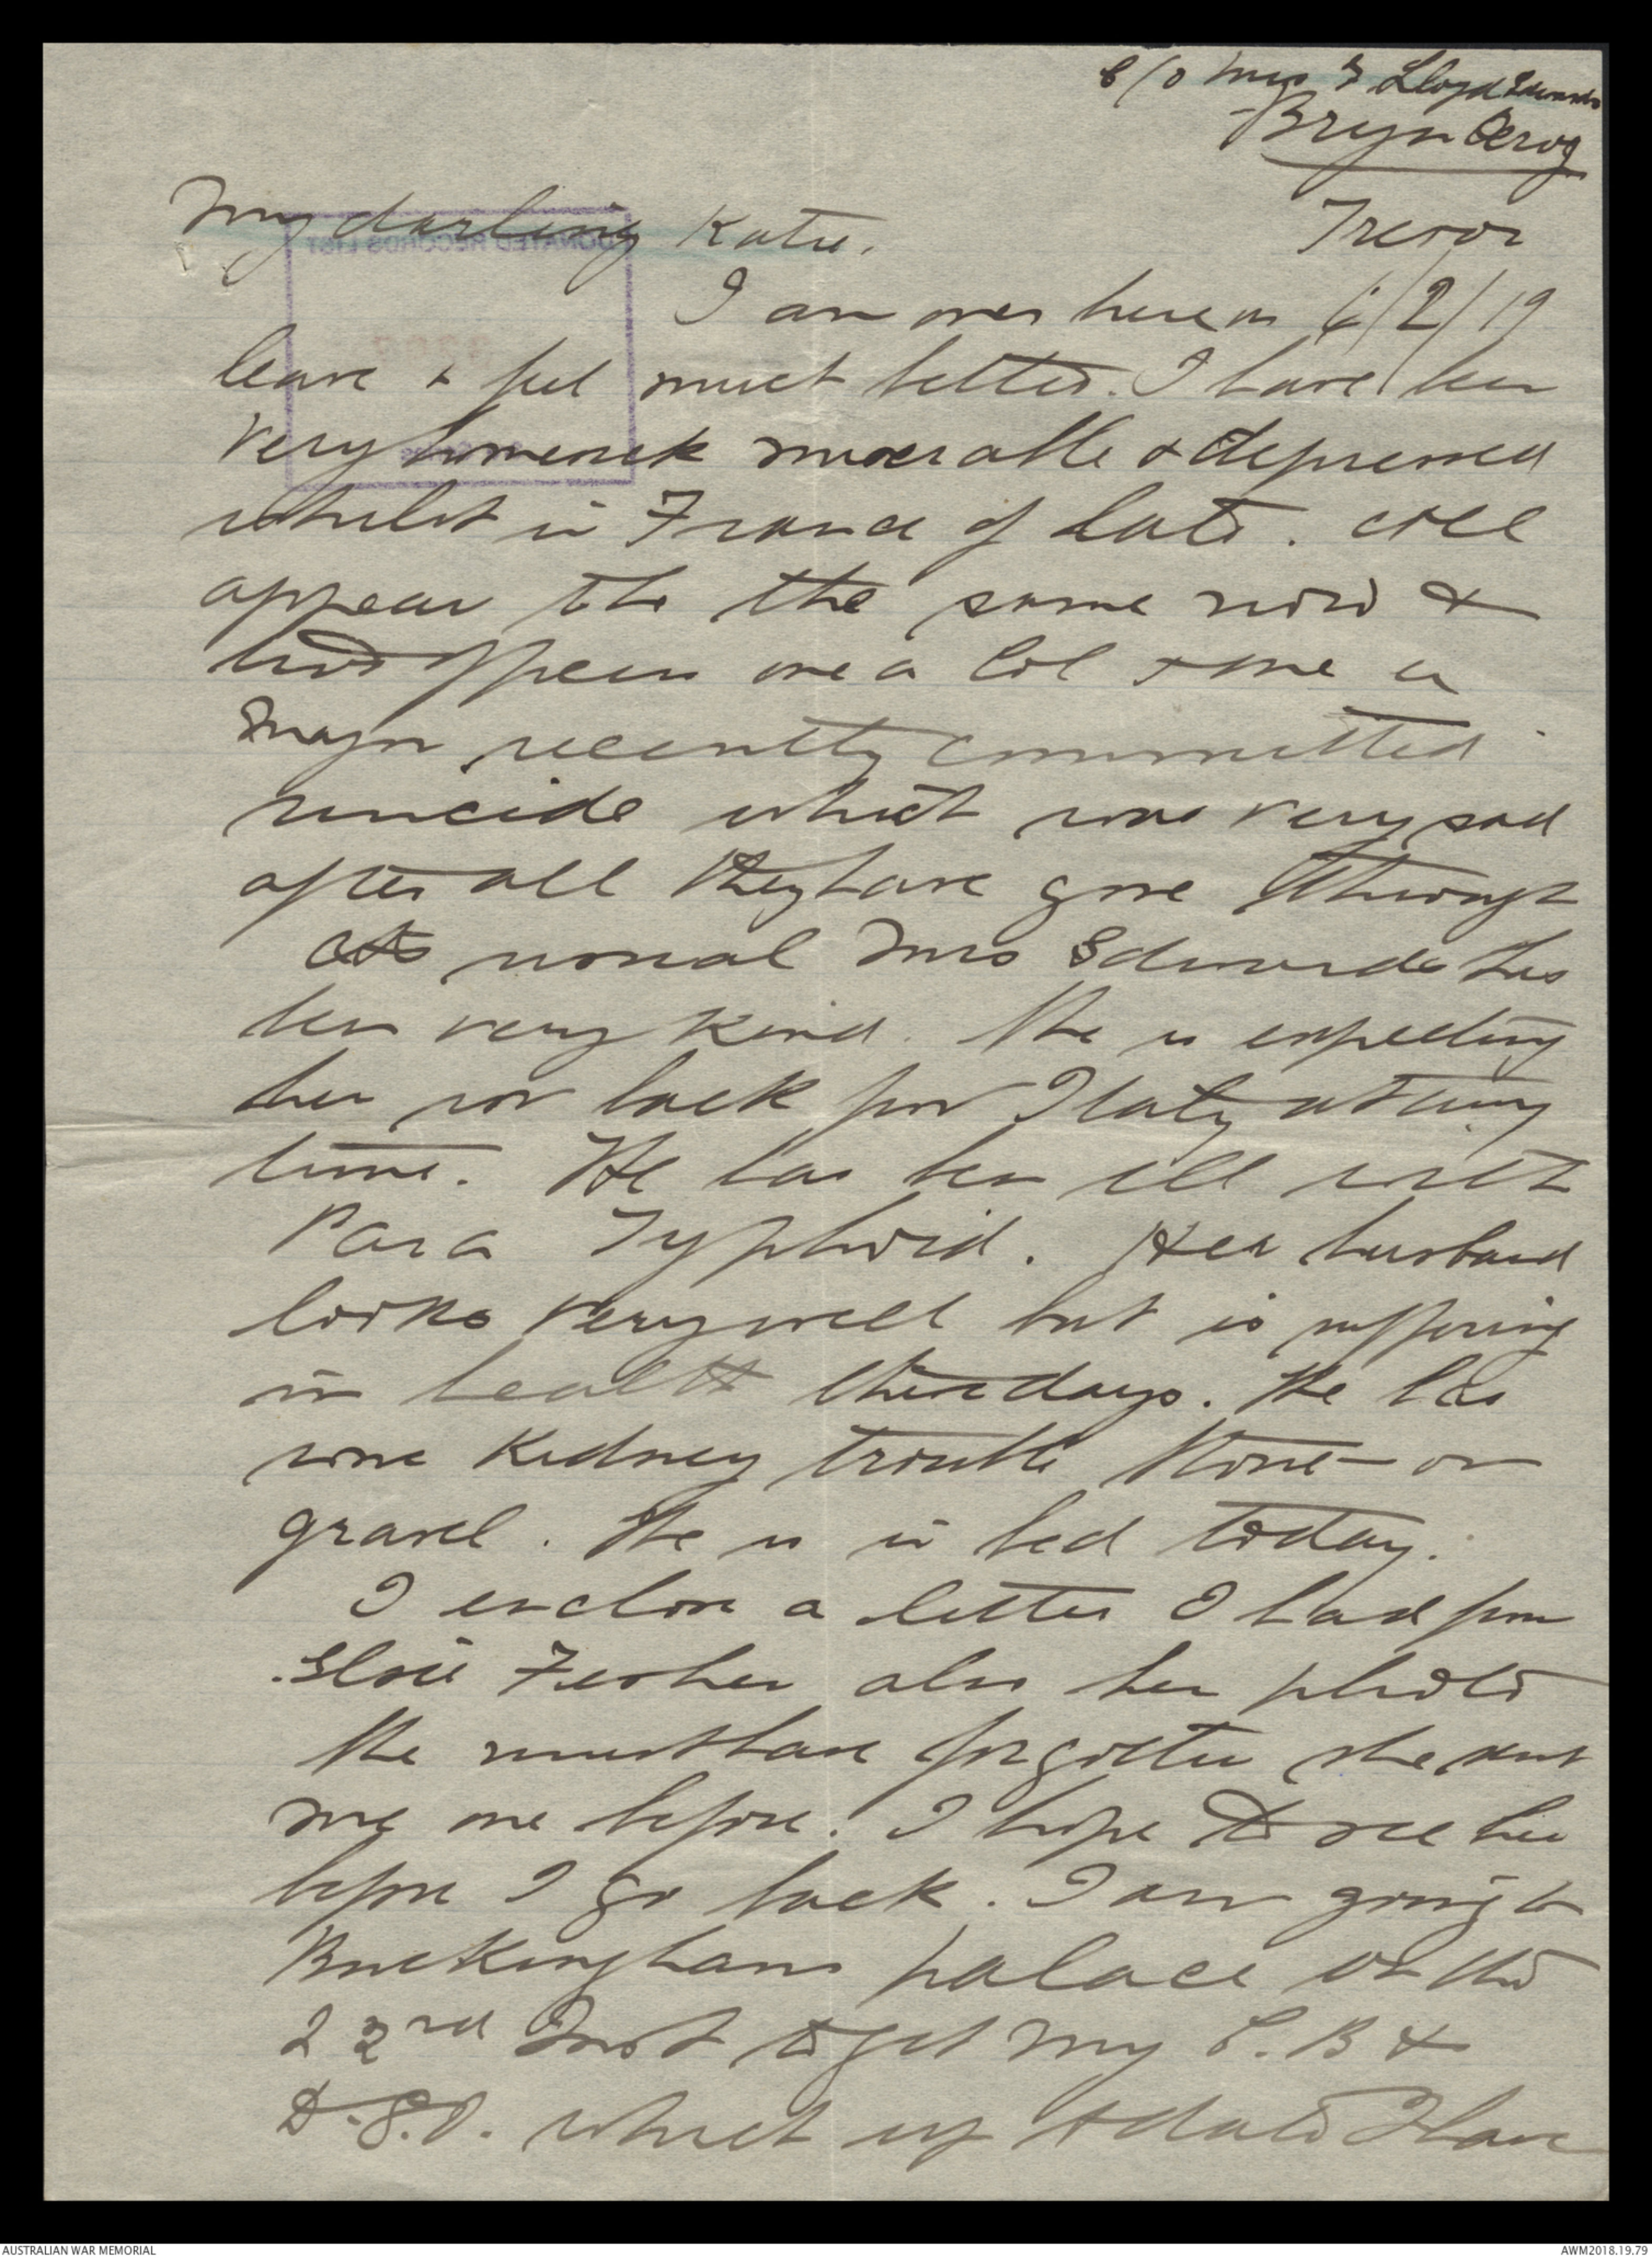 c/o Mrs F Lloyd Edwards
Bryn Oerog
Trevor
My darling Katie.
6/2/19
I am over here on
leave & feel much better. I have been
very homesick miserable & depressed
whilst in France of late. All
appear to be the same now &
two officers one a Col & one a
Major recently committed
suicide which was very sad
after all they have gone through
As usual Mrs Edwards has
been very kind. She is expecting
her son back from Italy at any
time. He has been ill with
Para Typhoid. Her husband
looks very well but is suffering
in health these days. He has
some Kidney trouble Stone or
gravel. He is in bed today.
I enclose a letter I had from
Elsie also her photo
She must have forgotten she sent
me one before. I hope to see her
before I go back. I am going to
Buckingham palace on the
22nd Inst to get my C.B &
D.S.O. which up to date I have
DONATED RECORDS LIST
AUSTRALIAN WAR MEMORIAL
AWM2018.19.79